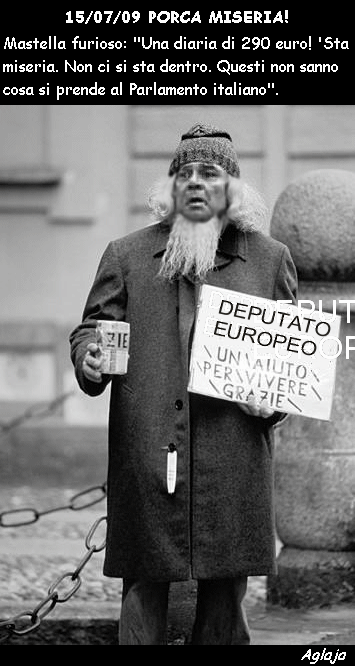 15/07/09 PORCA MISERIA!
Mastella furioso: "Una diaria di 290 euro! 'Sta
miseria. Non ci si sta dentro. Questi non sanno
cosa si prende al Parlamento italiano".
ZIE
DEPUTATO
EUROPEO
UN AIUTO
PER VIVERE
GRAZIE
Aglaja